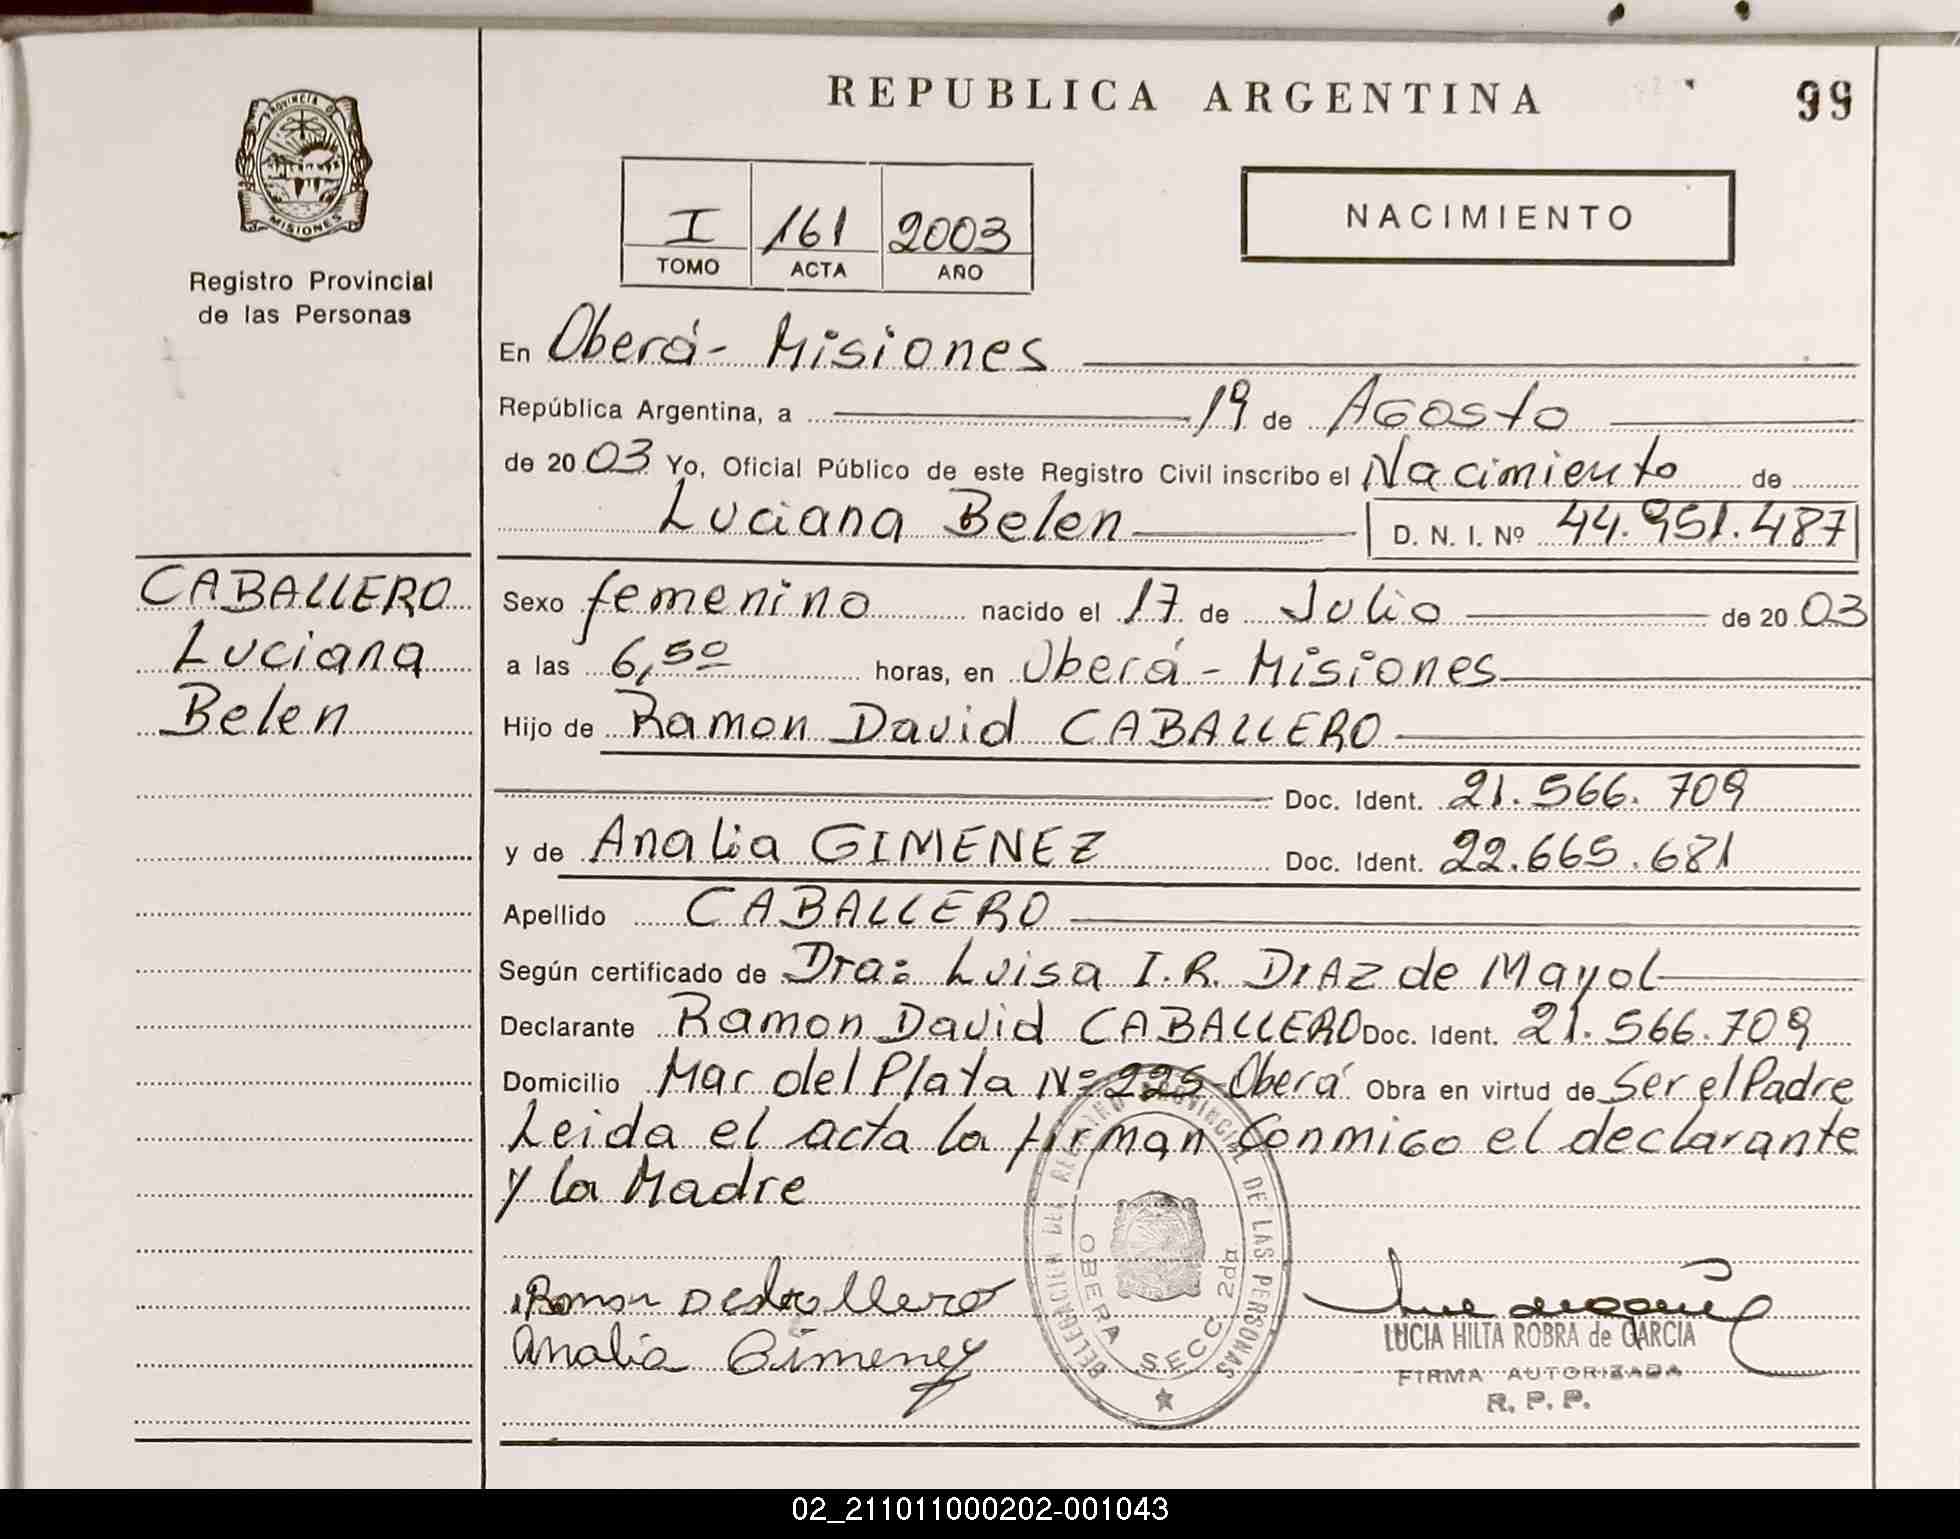 REPUBLICA ARGENTINA
99
PROVINCIA DE MISIONES
Registro Provincial
de las Personas
I 161 2003
TOMO ACTA AÑO
NACIMIENTO
En Oberá - Misiones
República Argentina, a 19 de Agosto
de 20 03 Yo, Oficial Público de este Registro Civil inscribo el Nacimiento de
Luciana Belen D. N. I. Nº 44.951.487
CABALLERO
Luciana
Belen
Sexo femenino nacido el 17 de Julio de 20 03
a las 6,50 horas, en Oberá - Misiones
Hijo de Ramon David CABALLERO
Doc. Ident. 21.566.709
y de Analia GIMENEZ Doc. Ident. 22.665.681
Apellido CABALLERO
Según certificado de Dra: Luisa I.R. DIAZ de Mayol
Declarante Ramon David CABALLERO Doc. Ident. 21.566.709
Domicilio Mar del Plata Nº 225 - Oberá Obra en virtud de Ser el Padre
Leida el acta la firman Conmigo el declarante
y la Madre
DELEGACION DEL REGISTRO PROVINCIAL DE LAS PERSONAS
OBERA SECC 2da
Ramon
Analia Gimenez
LUCIA HILTA ROBRA de GARCIA
FIRMA AUTORIZADA
R. P. P.
02_211011000202-001043